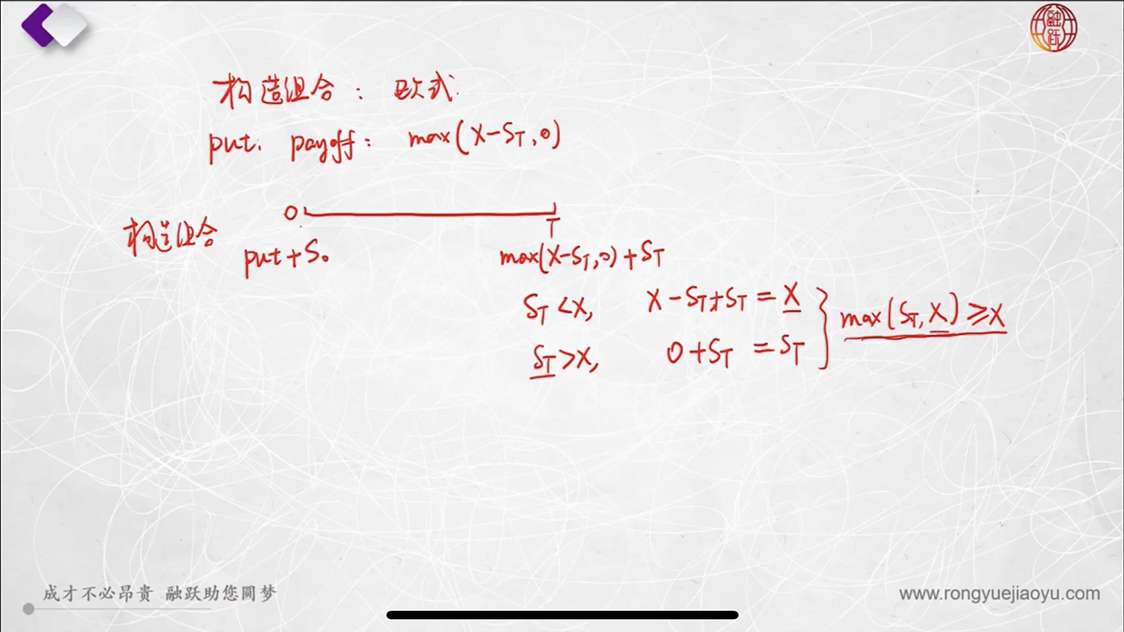 融跃
构造组合：欧式.
put. payoff: max(X-S_T,0)
0 T
构造组合
put+S₀ max(X-S_T,0)+S_T
S_T<X, X-S_T+S_T=X
S_T>X, 0+S_T=S_T } max(S_T,X)≥X
成才不必昂贵 融跃助您圆梦
www.rongyuejiaoyu.com